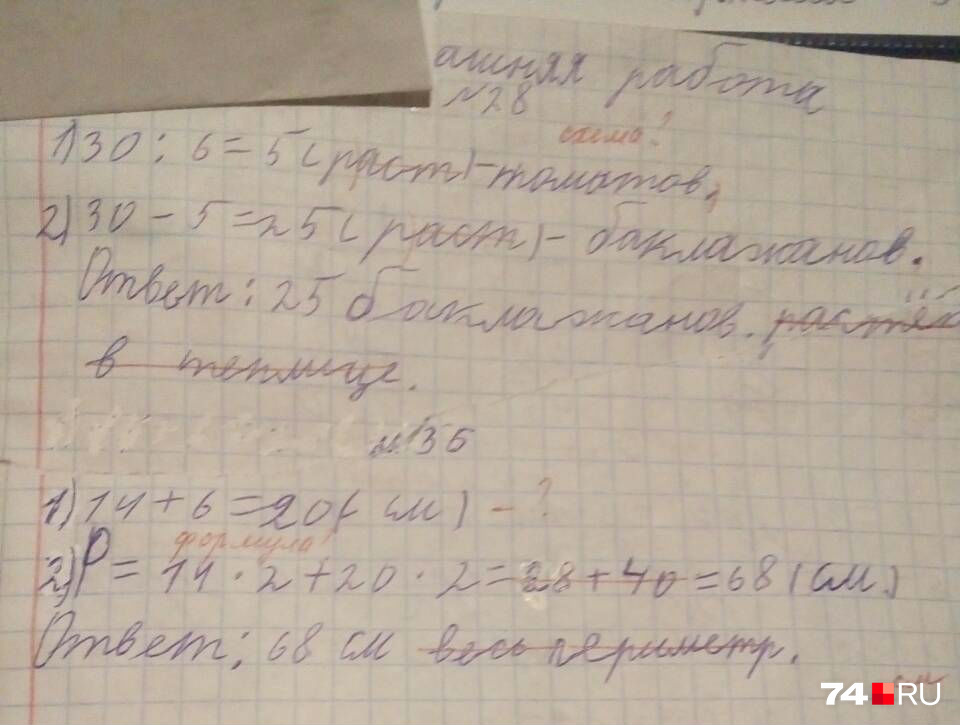 ашняя работа
№28
схема?
1) 30 : 6 = 5 (раст) - томатов.
2) 30 - 5 = 25 (раст) - баклажанов.
Ответ: 25 баклажанов. растёт
в теплице.
№36
1) 14 + 6 = 20 (см) - ?
формула
2) P = 14 · 2 + 20 · 2 = 28 + 40 = 68 (см)
Ответ: 68 см весь периметр.
см
74.RU